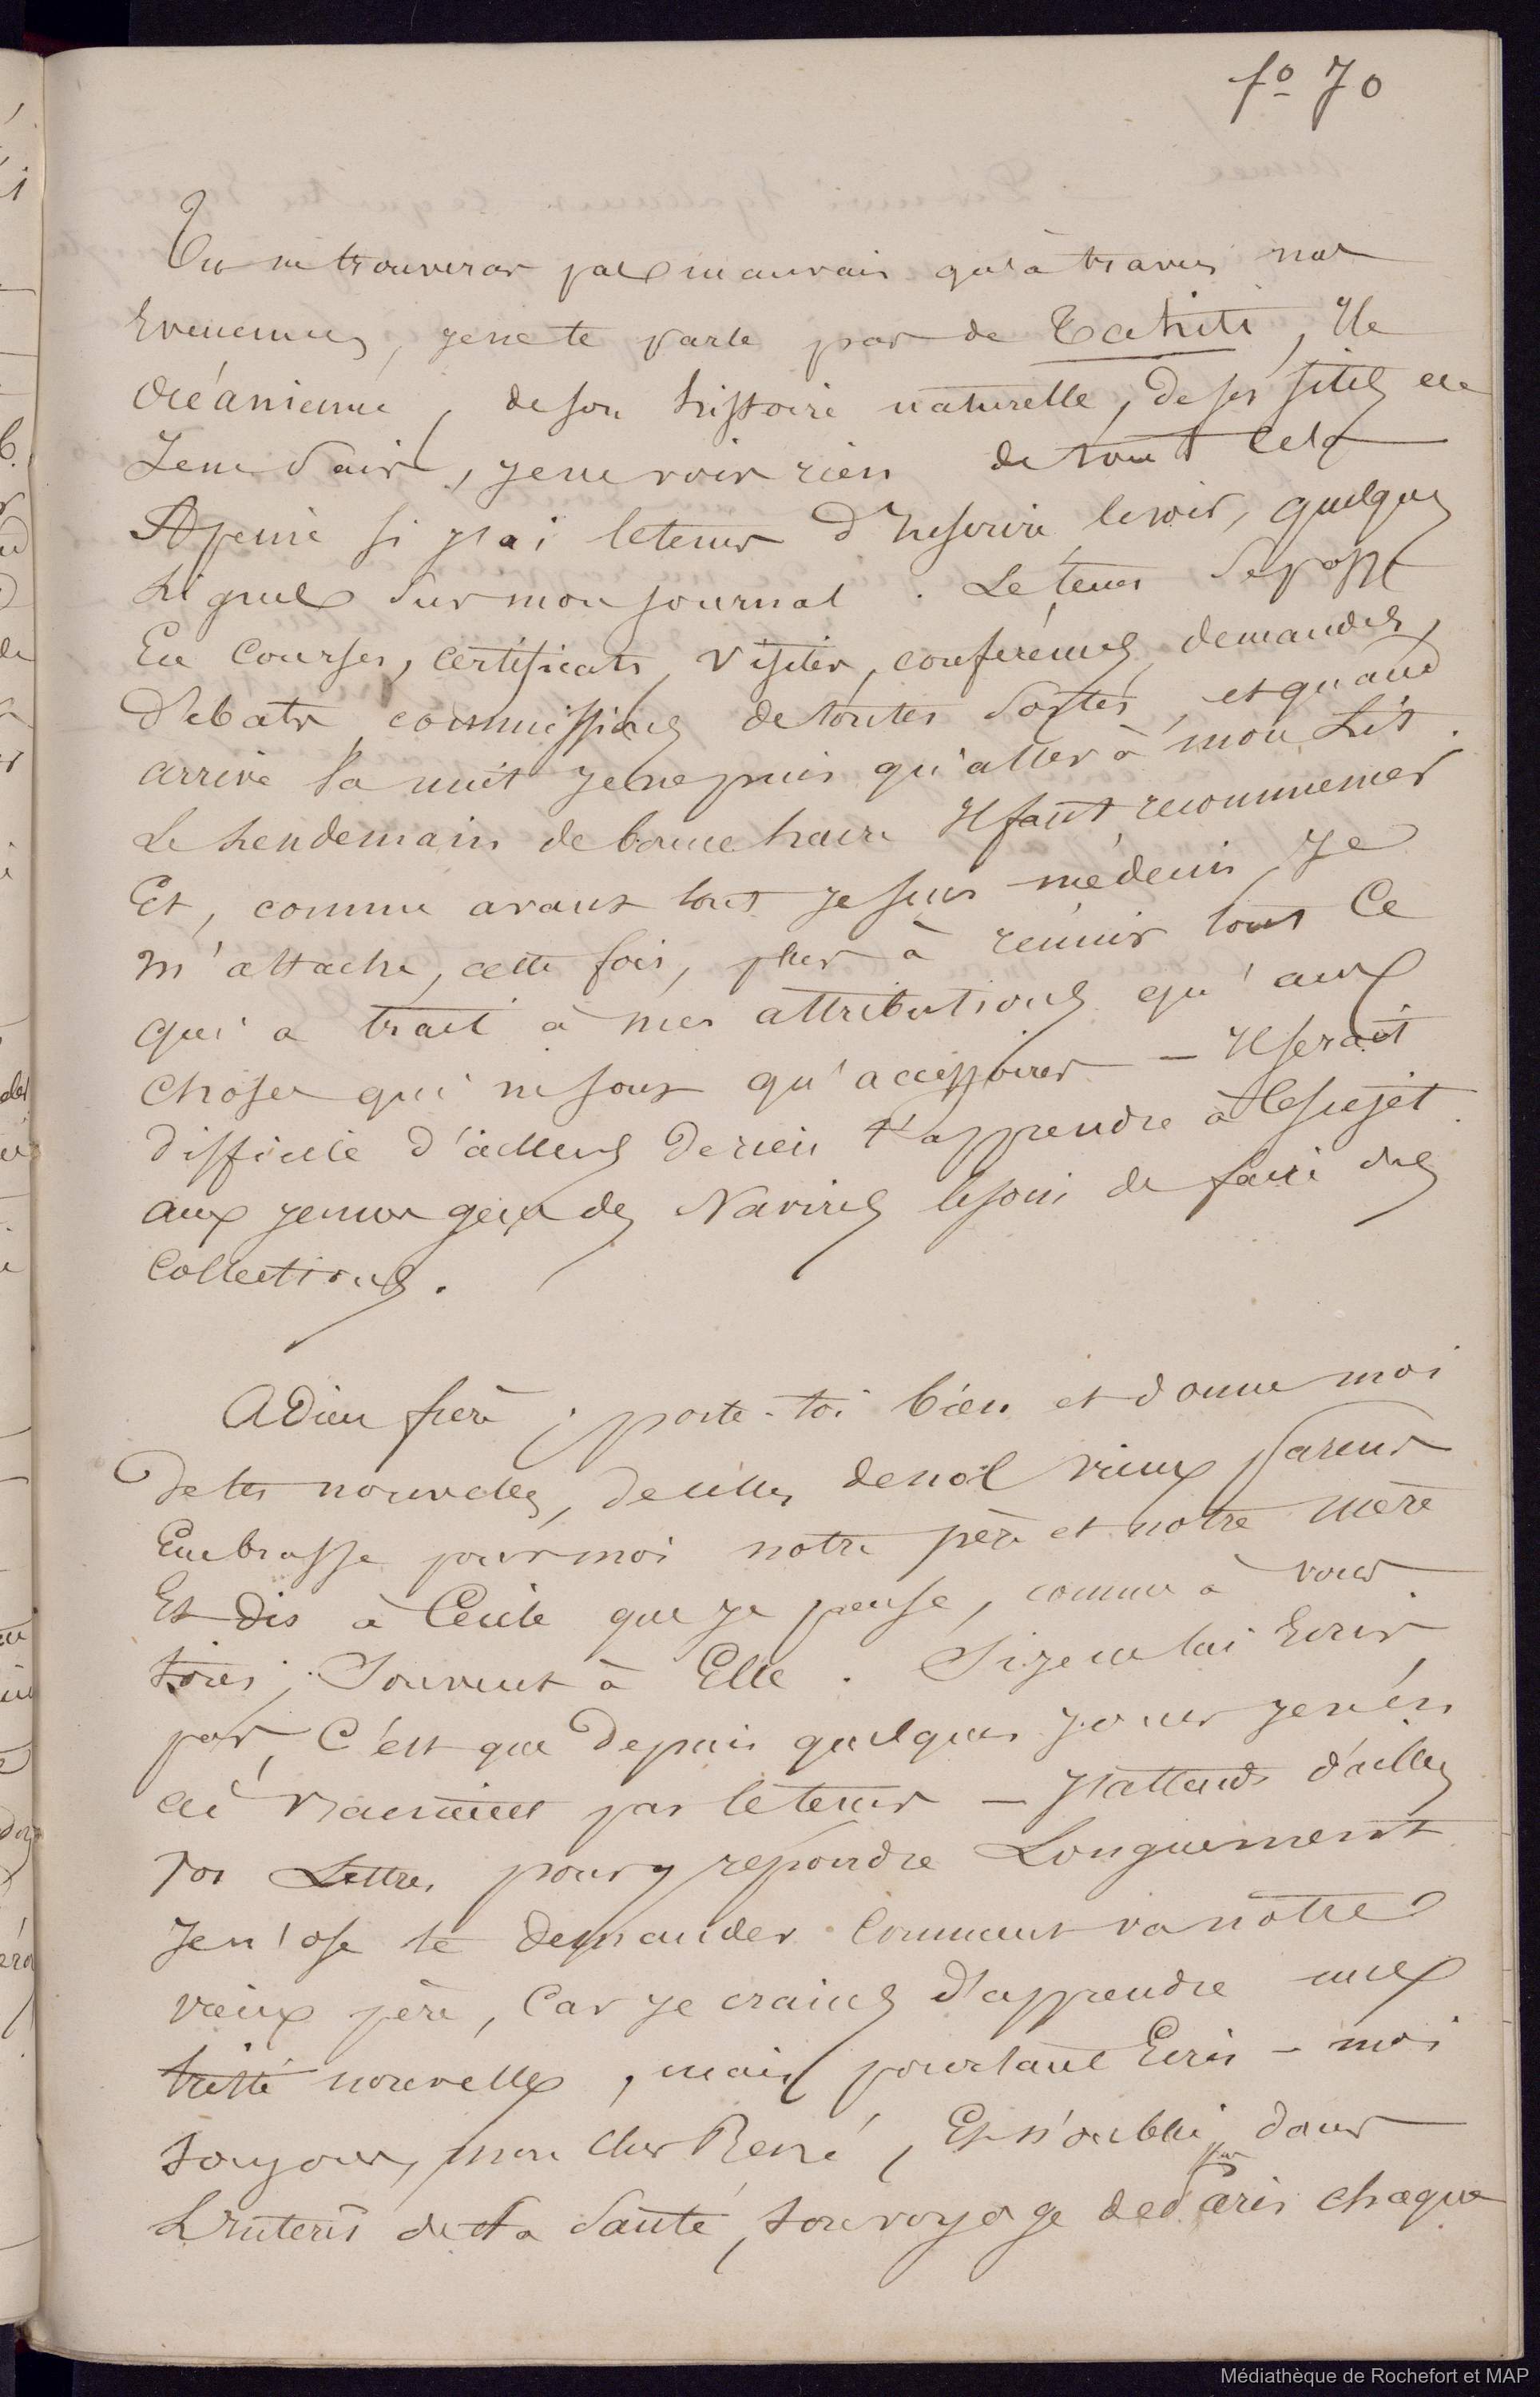 fo 70
Tu ne trouveras pas mauvais qu'à travers nos
Evenemens, je ne te parle pas de Tahiti, Ile
Océanienne, de son histoire naturelle, de ses sites etc
Je ne sais, je ne vois rien de tout cela
A peine si j'ai le tems d'Inscrire le soir, quelques
Lignes sur mon journal. Le tems se passe
En courses, certificats, visites, conférences, demandes,
Débats, commissions de toutes sortes, et quand
arrive la nuit je ne puis qu'aller à mon Lit.
Le Lendemain de bonne heure Il faut recommencer
Et, comme avant tout je suis médecin, je
m'attache, cette fois, plus à réunir tout ce
qui a trait à mes attributions qu'aux
choses qui ne sont qu'accessoires — Il serait
difficile d'ailleurs de rien t'apprendre à ce sujet.
aux jeunes gens des Navires le soin de faire des
collections.
Adieu frère ; porte-toi bien et donne moi
de tes nouvelles, de celles de nos vieux parens
Embrasse pour moi notre père et notre mère
Et dis à Cécile que je pense, comme à vous
tous, souvent à Elle. Si je ne lui Ecris
pas, c'est que depuis quelques jours je n'en
ai vraiment pas le tems — J'attends d'ailleurs
vos Lettres pour y répondre Longuement
Je n'ose te demander comment va notre
vieux père, car je crains d'apprendre une
triste nouvelle, mais pourtant Ecris-moi
toujours, mon cher René, Et n'oublie pas dans
L'intérêt de ta santé, ton voyage de Paris chaque
Médiathèque de Rochefort et MAP